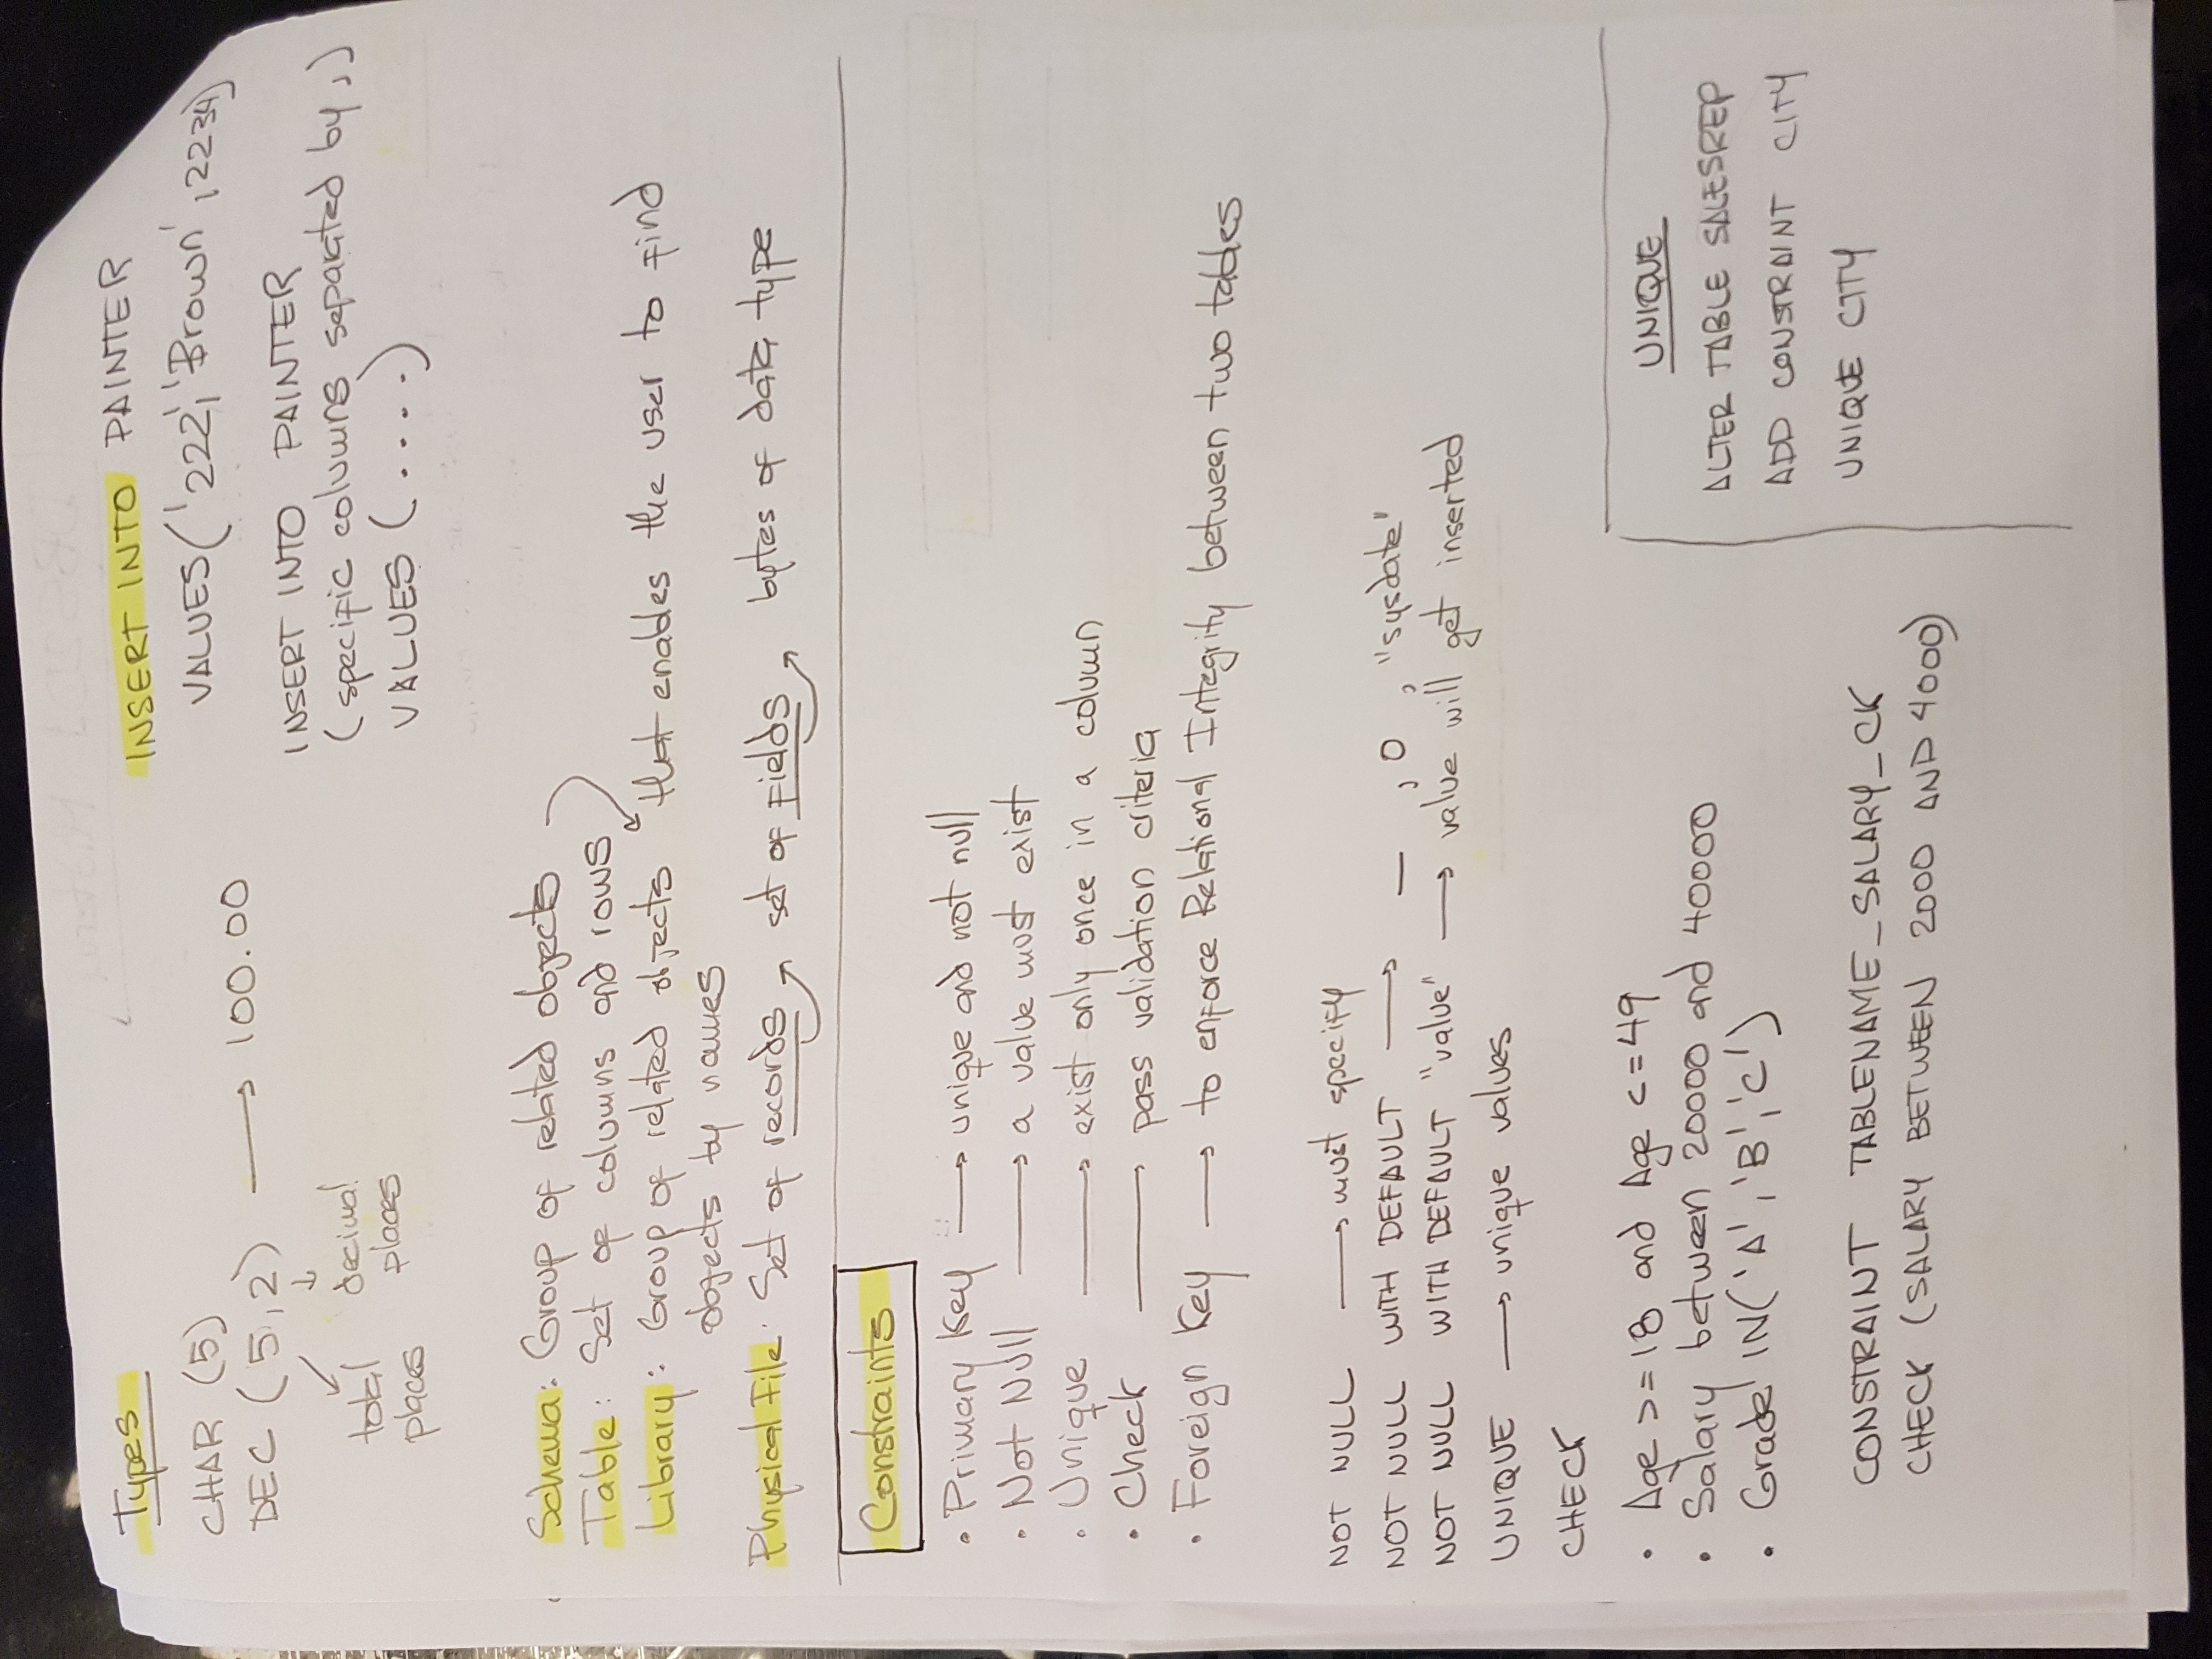 Types
CHAR (5)
DEC (5,2) → 100.00
total places
decimal places
INSERT INTO PAINTER
VALUES('222','Brown',2234)
INSERT INTO PAINTER
(specific columns separated by,)
VALUES (....)
Schema: Group of related objects
Table: Set of columns and rows
Library: Group of related objects that enables the user to find
objects by names
Physical File: Set of records → set of fields → bytes of data type
Constraints
• Primary Key → unique and not null
• Not Null → a value must exist
• Unique → exist only once in a column
• Check → pass validation criteria
• Foreign Key → to enforce Relational Integrity between two tables
NOT NULL → must specify
NOT NULL WITH DEFAULT → _ , 0 , "sysdate"
NOT NULL WITH DEFAULT "value" → value will get inserted
UNIQUE → unique values
CHECK
• Age >=18 and Age <=49
• Salary between 20000 and 40000
• Grade IN('A','B','C')
CONSTRAINT TABLENAME_SALARY_CK
CHECK (SALARY BETWEEN 2000 AND 4000)
UNIQUE
ALTER TABLE SALESREP
ADD CONSTRAINT CITY
UNIQUE CITY